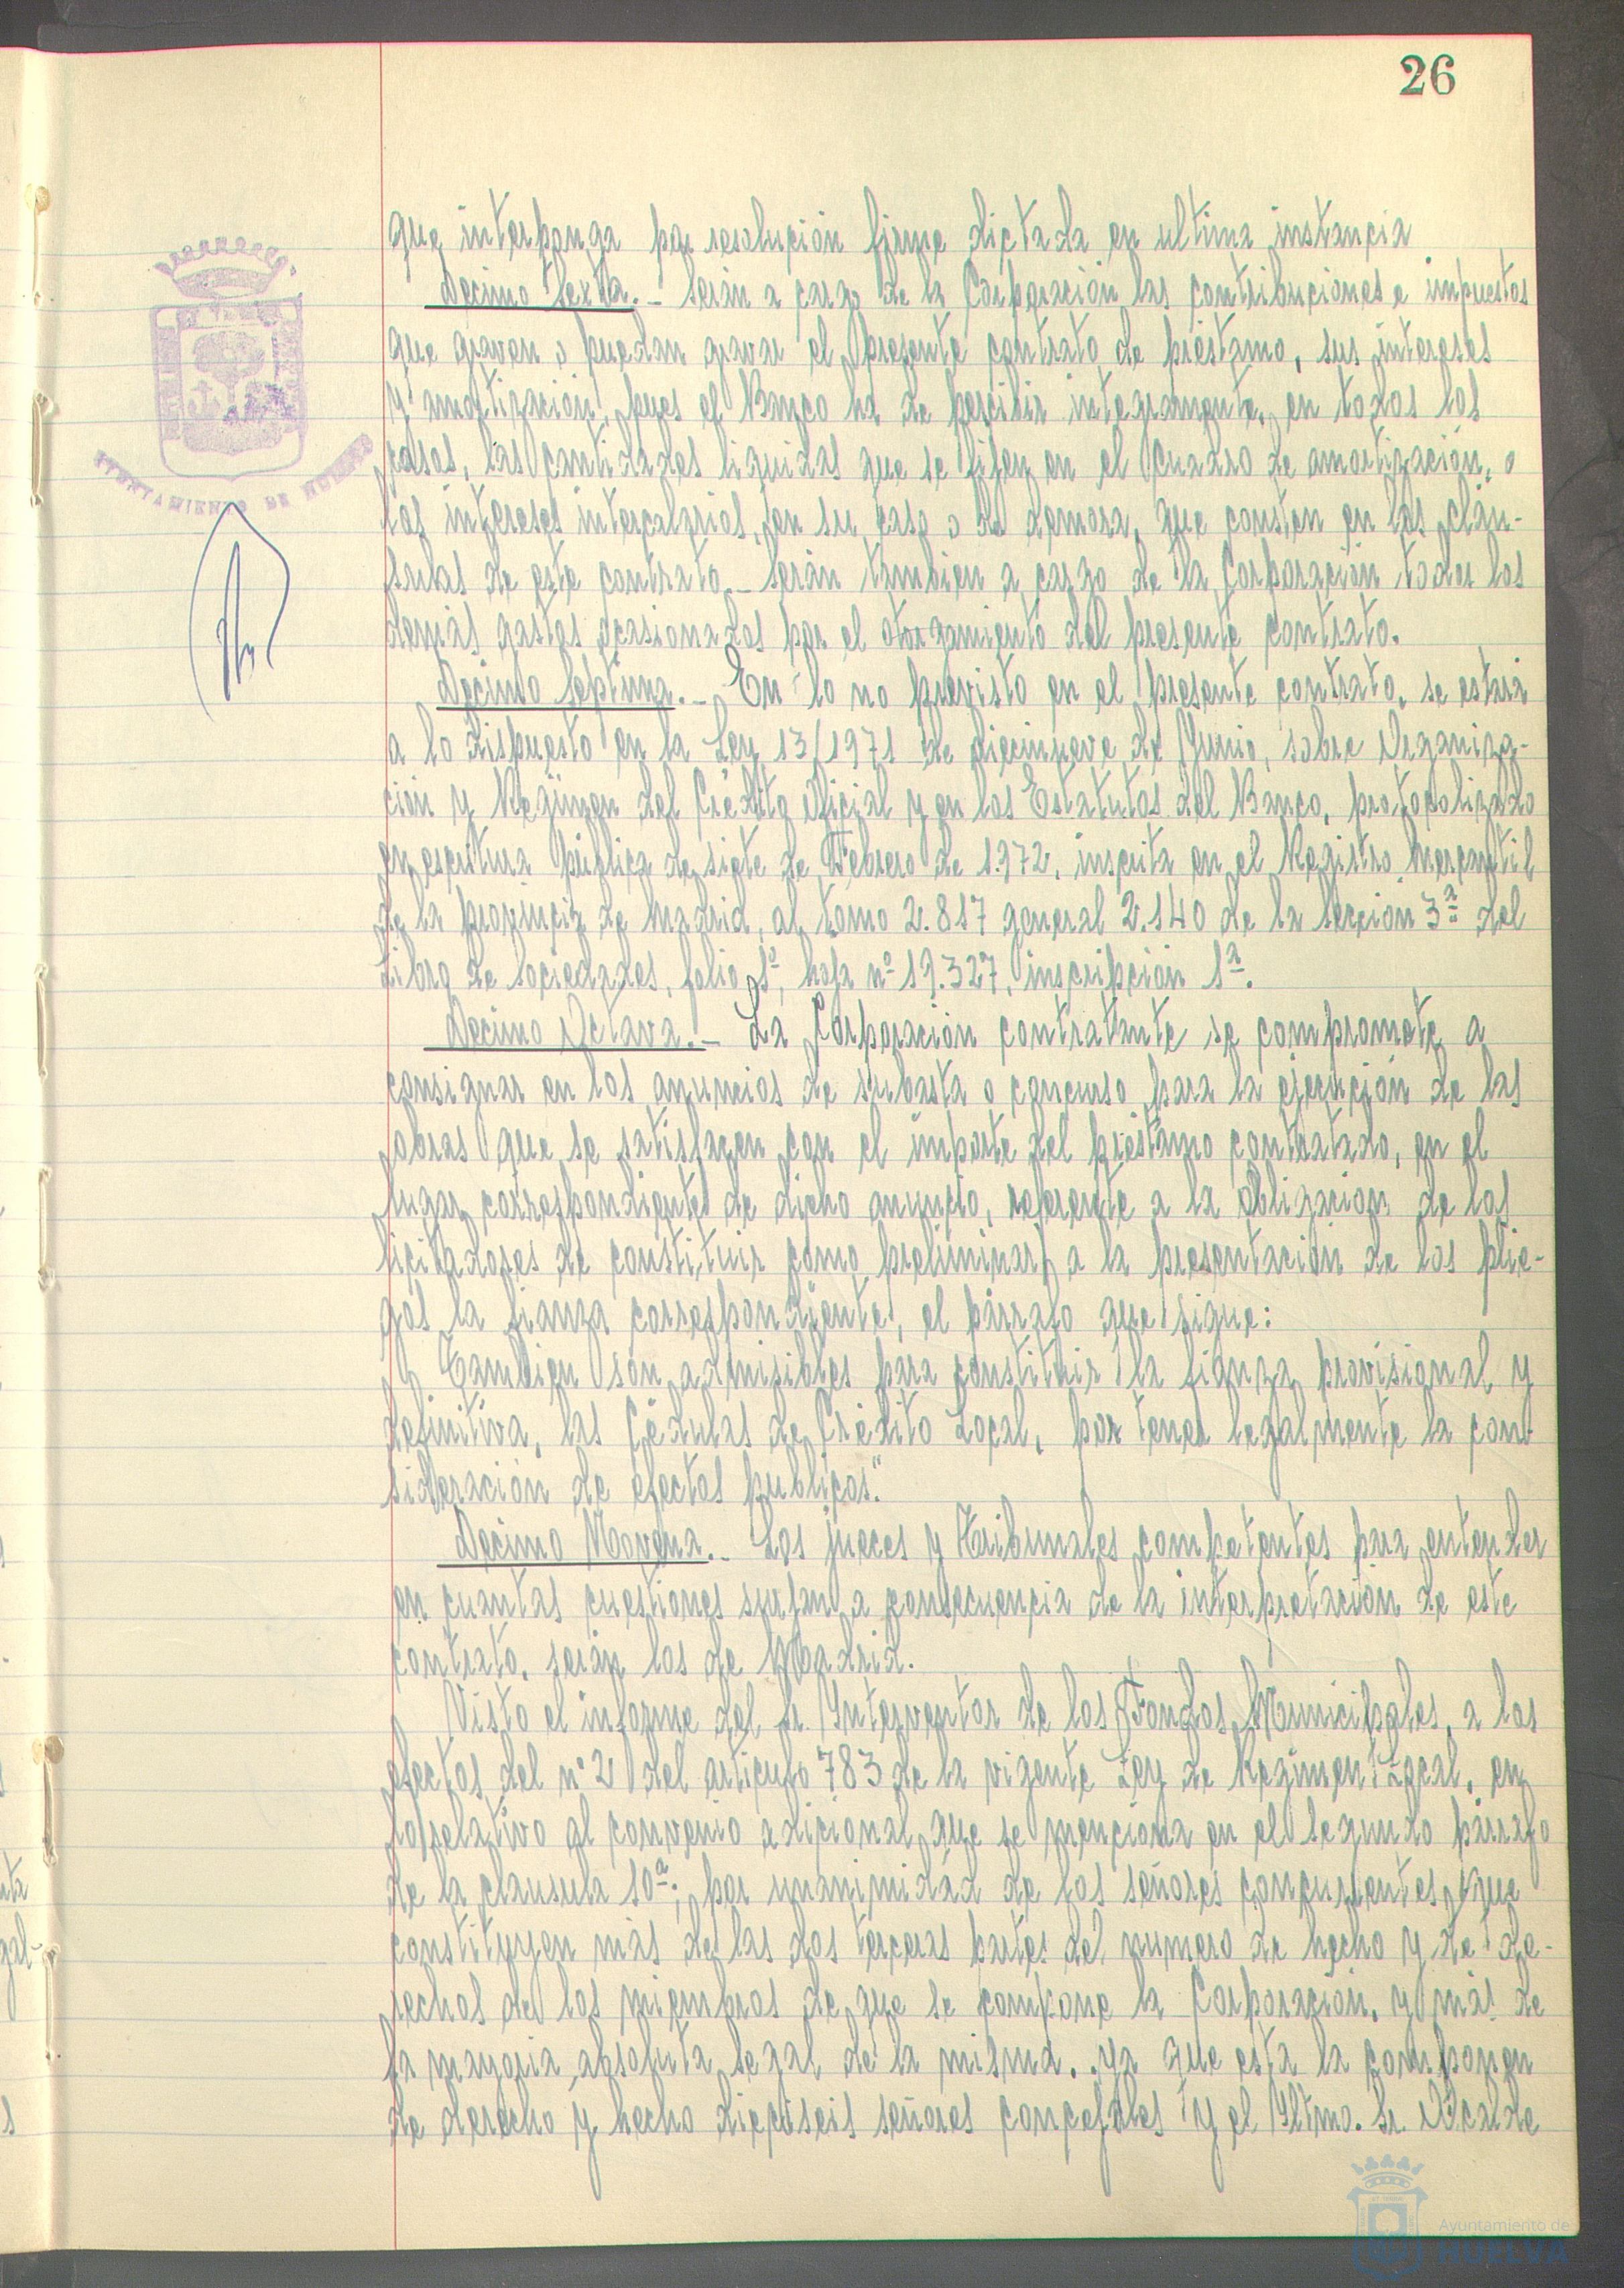 26
que interponga por resolución firme dictada en ultima instancia
Decimo Sexta.- Serán a cargo de la Corporación las contribuciones e impuestos
que graven o puedan gravar el presente contrato de préstamo, sus intereses
y amortización, pues el Banco ha de percibir integramente, en todos los
casos, las cantidades liquidas que se fijen en el cuadro de amortización, o
los intereses intercalarios, en su caso o de demora, que consten en las cláu-
sulas de este contrato.- Serán tambien a cargo de la Corporación todos los
demás gastos ocasionados por el otorgamiento del presente contrato.
Decimo Septima.- En lo no previsto en el presente contrato, se estará
a lo dispuesto en la Ley 13/1971 de diecinueve de Junio, sobre Organiza-
ción y Régimen del Crédito Oficial y en los Estatutos del Banco, protocolizado
en escritura pública de siete de Febrero de 1.972, inscrita en el Registro Mercantil
de la provincia de Madrid, al tomo 2.817 general 2.140 de la Sección 3ª del
Libro de Sociedades, folio 1º, hoja nº 19.327, inscripción 1ª.
Decimo Octava.- La Corporación contratante se compromete a
consignar en los anuncios de subasta o concurso para la ejecución de las
obras que se satisfagen con el importe del préstamo contratado, en el
lugar correspondiente de dicho anuncio, referente a la obligación de los
licitadores de constituir como preliminar a la presentación de los plie-
gos la fianza correspondiente, el párrafo que sigue:
Tambien son admisibles para constituir la fianza provisional y
definitiva, las Cédulas de Crédito Local, por tener legalmente la con
sideración de efectos publicos."
Decimo Novena.- Los jueces y Tribunales competentes para entender
en cuantas cuestiones surjan a consecuencia de la interpretación de este
contrato, serán los de Madrid.
Visto el informe del Sr. Interventor de los Fondos Municipales, a los
efectos del nº 2 del articulo 783 de la vigente Ley de Regimen Local, en
lo relativo al convenio adicional que se menciona en el segundo párrafo
de la clausula 10ª; por unanimidad de los señores concurrentes, que
constituyen más de las dos terceras partes del numero de hecho y de de-
rechos de los miembros de que se compone la Corporación, y más de
la mayoria absoluta legal de la misma, ya que esta la componen
de derecho y hecho dieciseis señores concejales y el Iltmo. Sr. Alcalde
AYUNTAMIENTO DE HUELVA
Ayuntamiento de
HUELVA